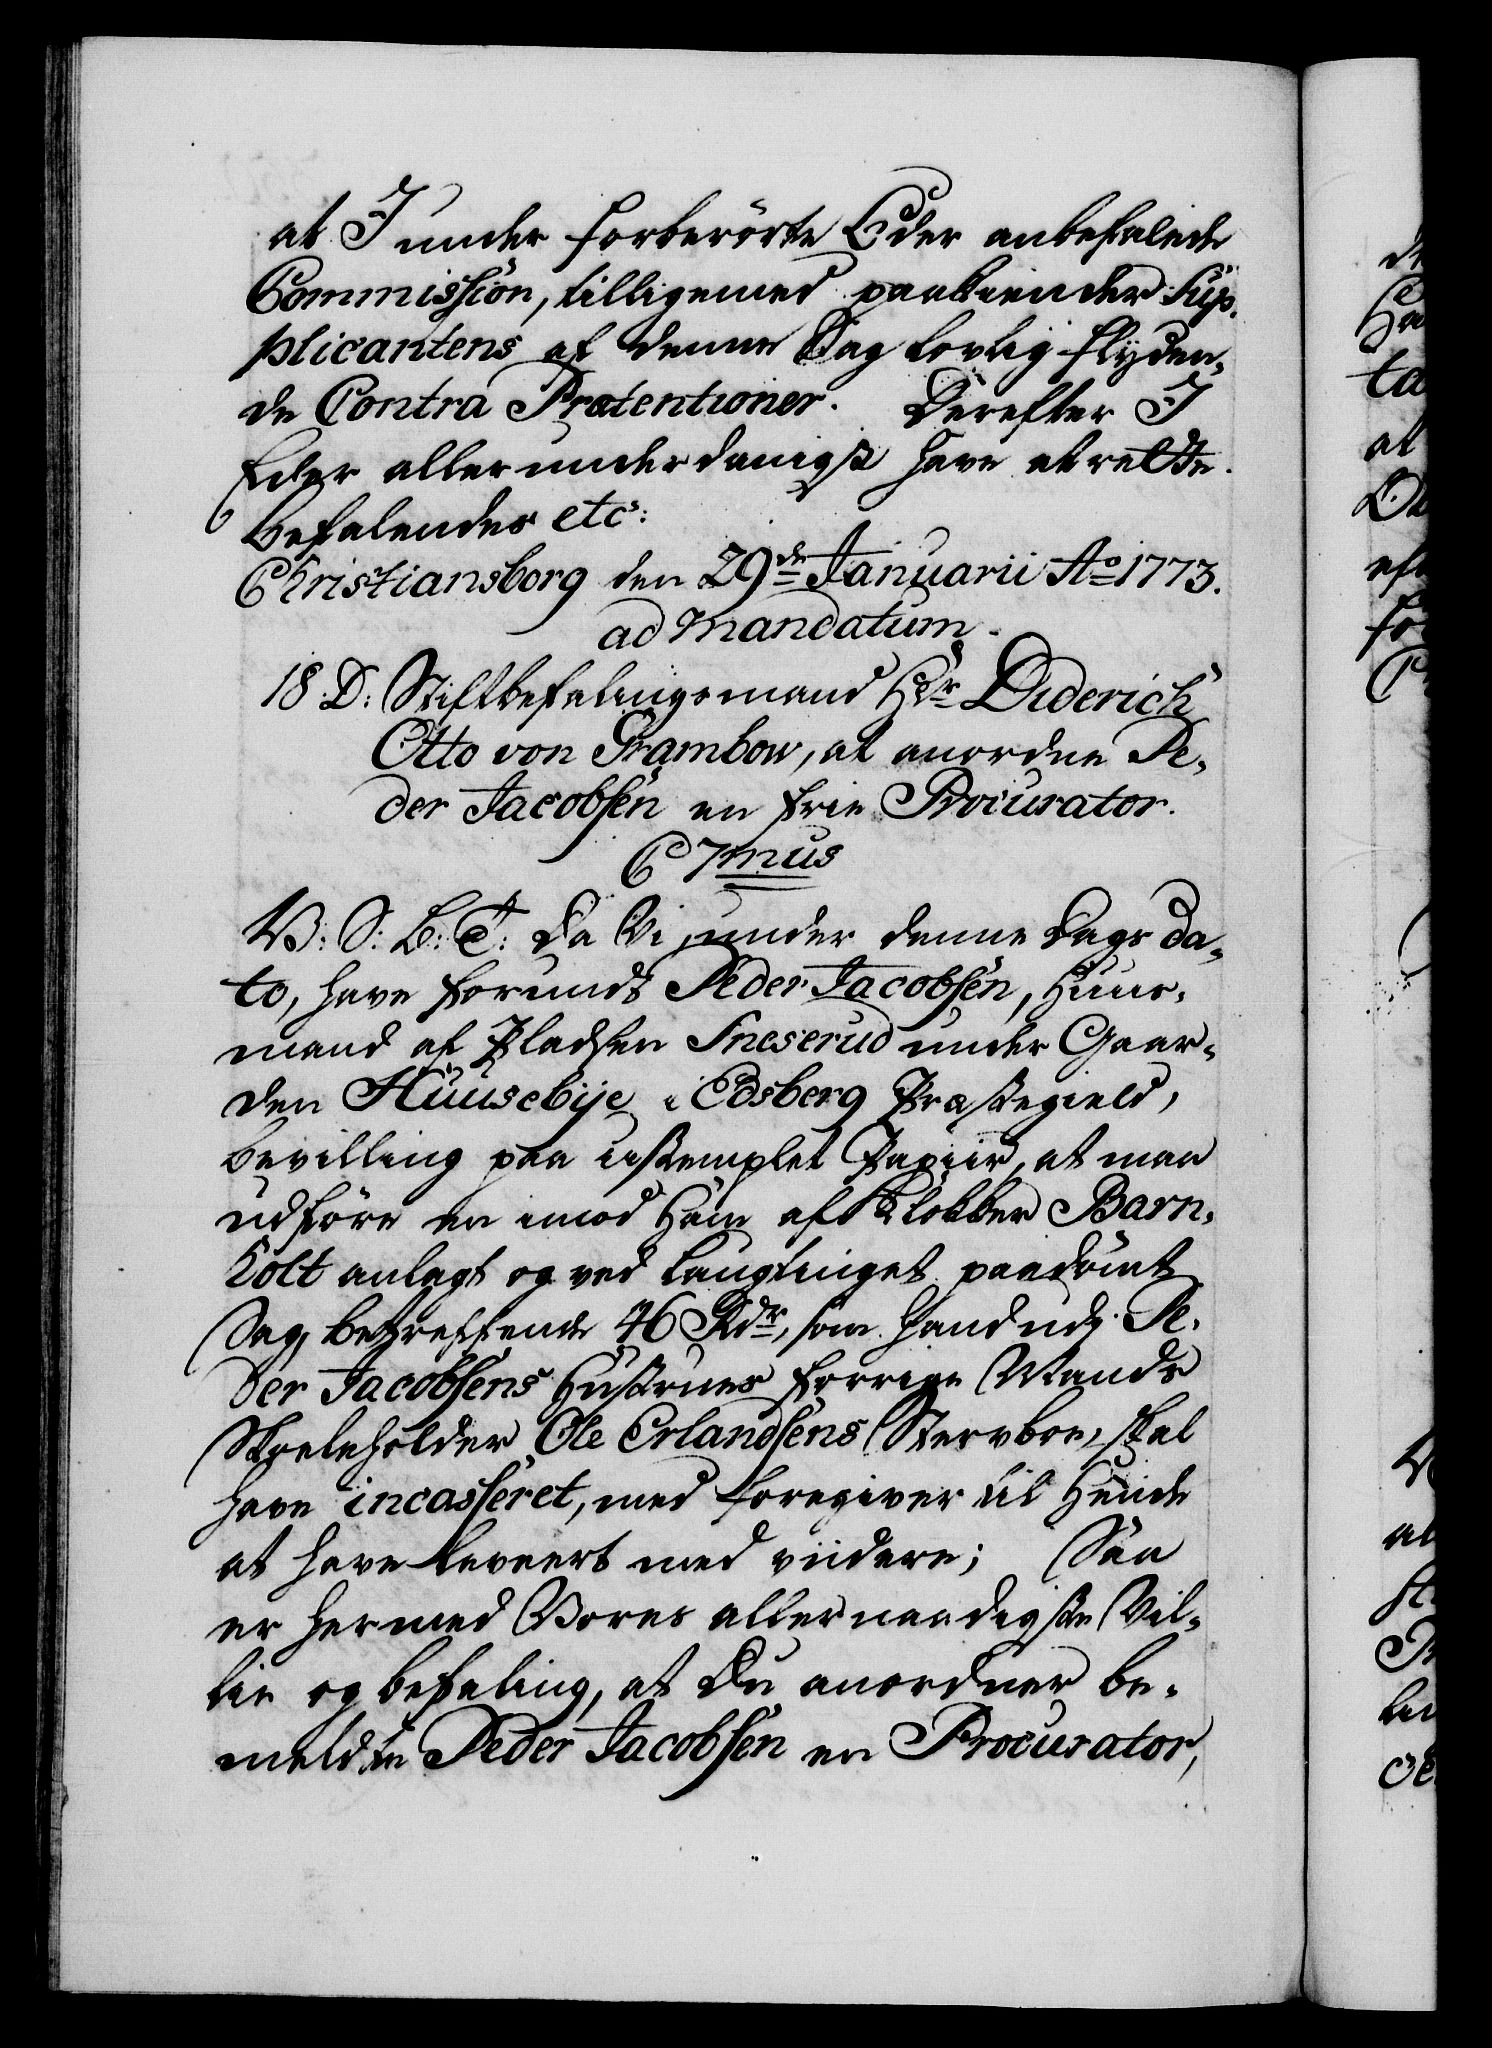 at I under forberörte Eder anbefalede
Commission, tilligemed paakiender Sup-
plicantens af denne Sag lovlig flyden-
de Contra Prætentioner. Derefter I
Eder allerunderdanigst have at rette.
Befalendes etc:
Christiansborg den 29de Januarii Ao 1773.
ad Mandatum.
18. D: Stiftbefalingsmand Hr Diderich
Otto von Grambow, at anordne Pe-
der Jacobsen en frie Procurator.
C 7mus
V: S: B: T: Da Vi, under denne Dags Da-
to, have forundt Peder Jacobsen, Huus-
mand af Pladsen Fneserud under Gaar-
den Huusebÿe i Edsberg Præstegield,
bevilling paa ustemplet Papiir, at maa
udföre en imod Ham af Klokker Barn-
holt anlagt og ved Laugtinget paadömt
Sag, betreffende 46 Rdr, som hand udj Pe-
der Jacobsens Hustrues forrige Mands
Skoeleholder Ole Erlandsens Stervboe, skal
have incasseret, med foregiver til Hende
at have leveert med viidere; Saa
er hermed Vores allernaadigste Vil-
lie og befaling, at Du anordner be-
meldte Peder Jacobsen en Procurator,